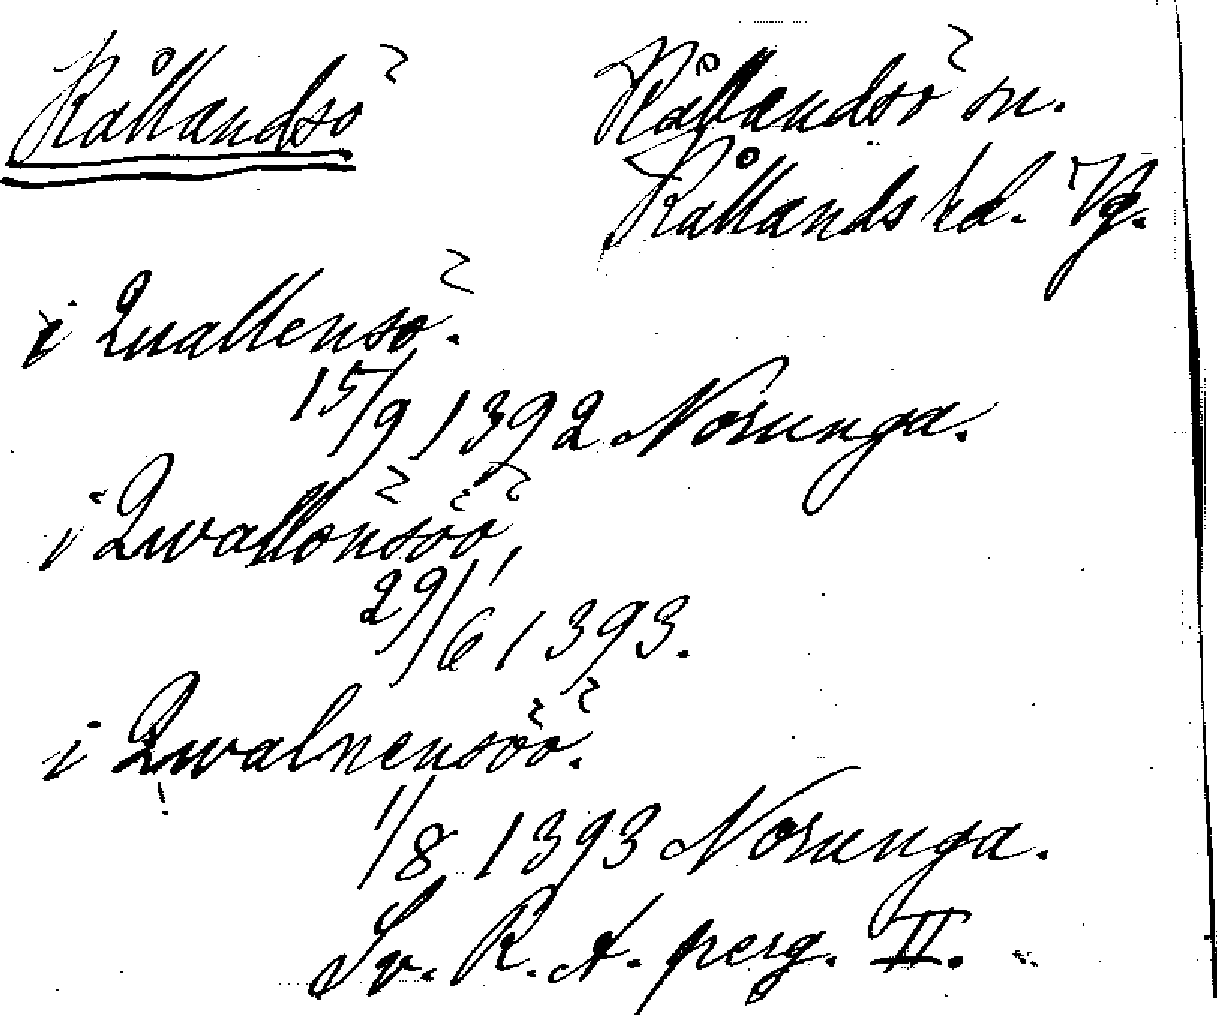 Kållandsö
Kållandsö sn.
Kållands hd. Vg.
i Quallensö.
15/9 1392 Norunga.
i Qwallönsöö,
29/6 1393.
i Qwalnensöö.
1/8 1393 Norunga.
Sv. R. A. perg. II.